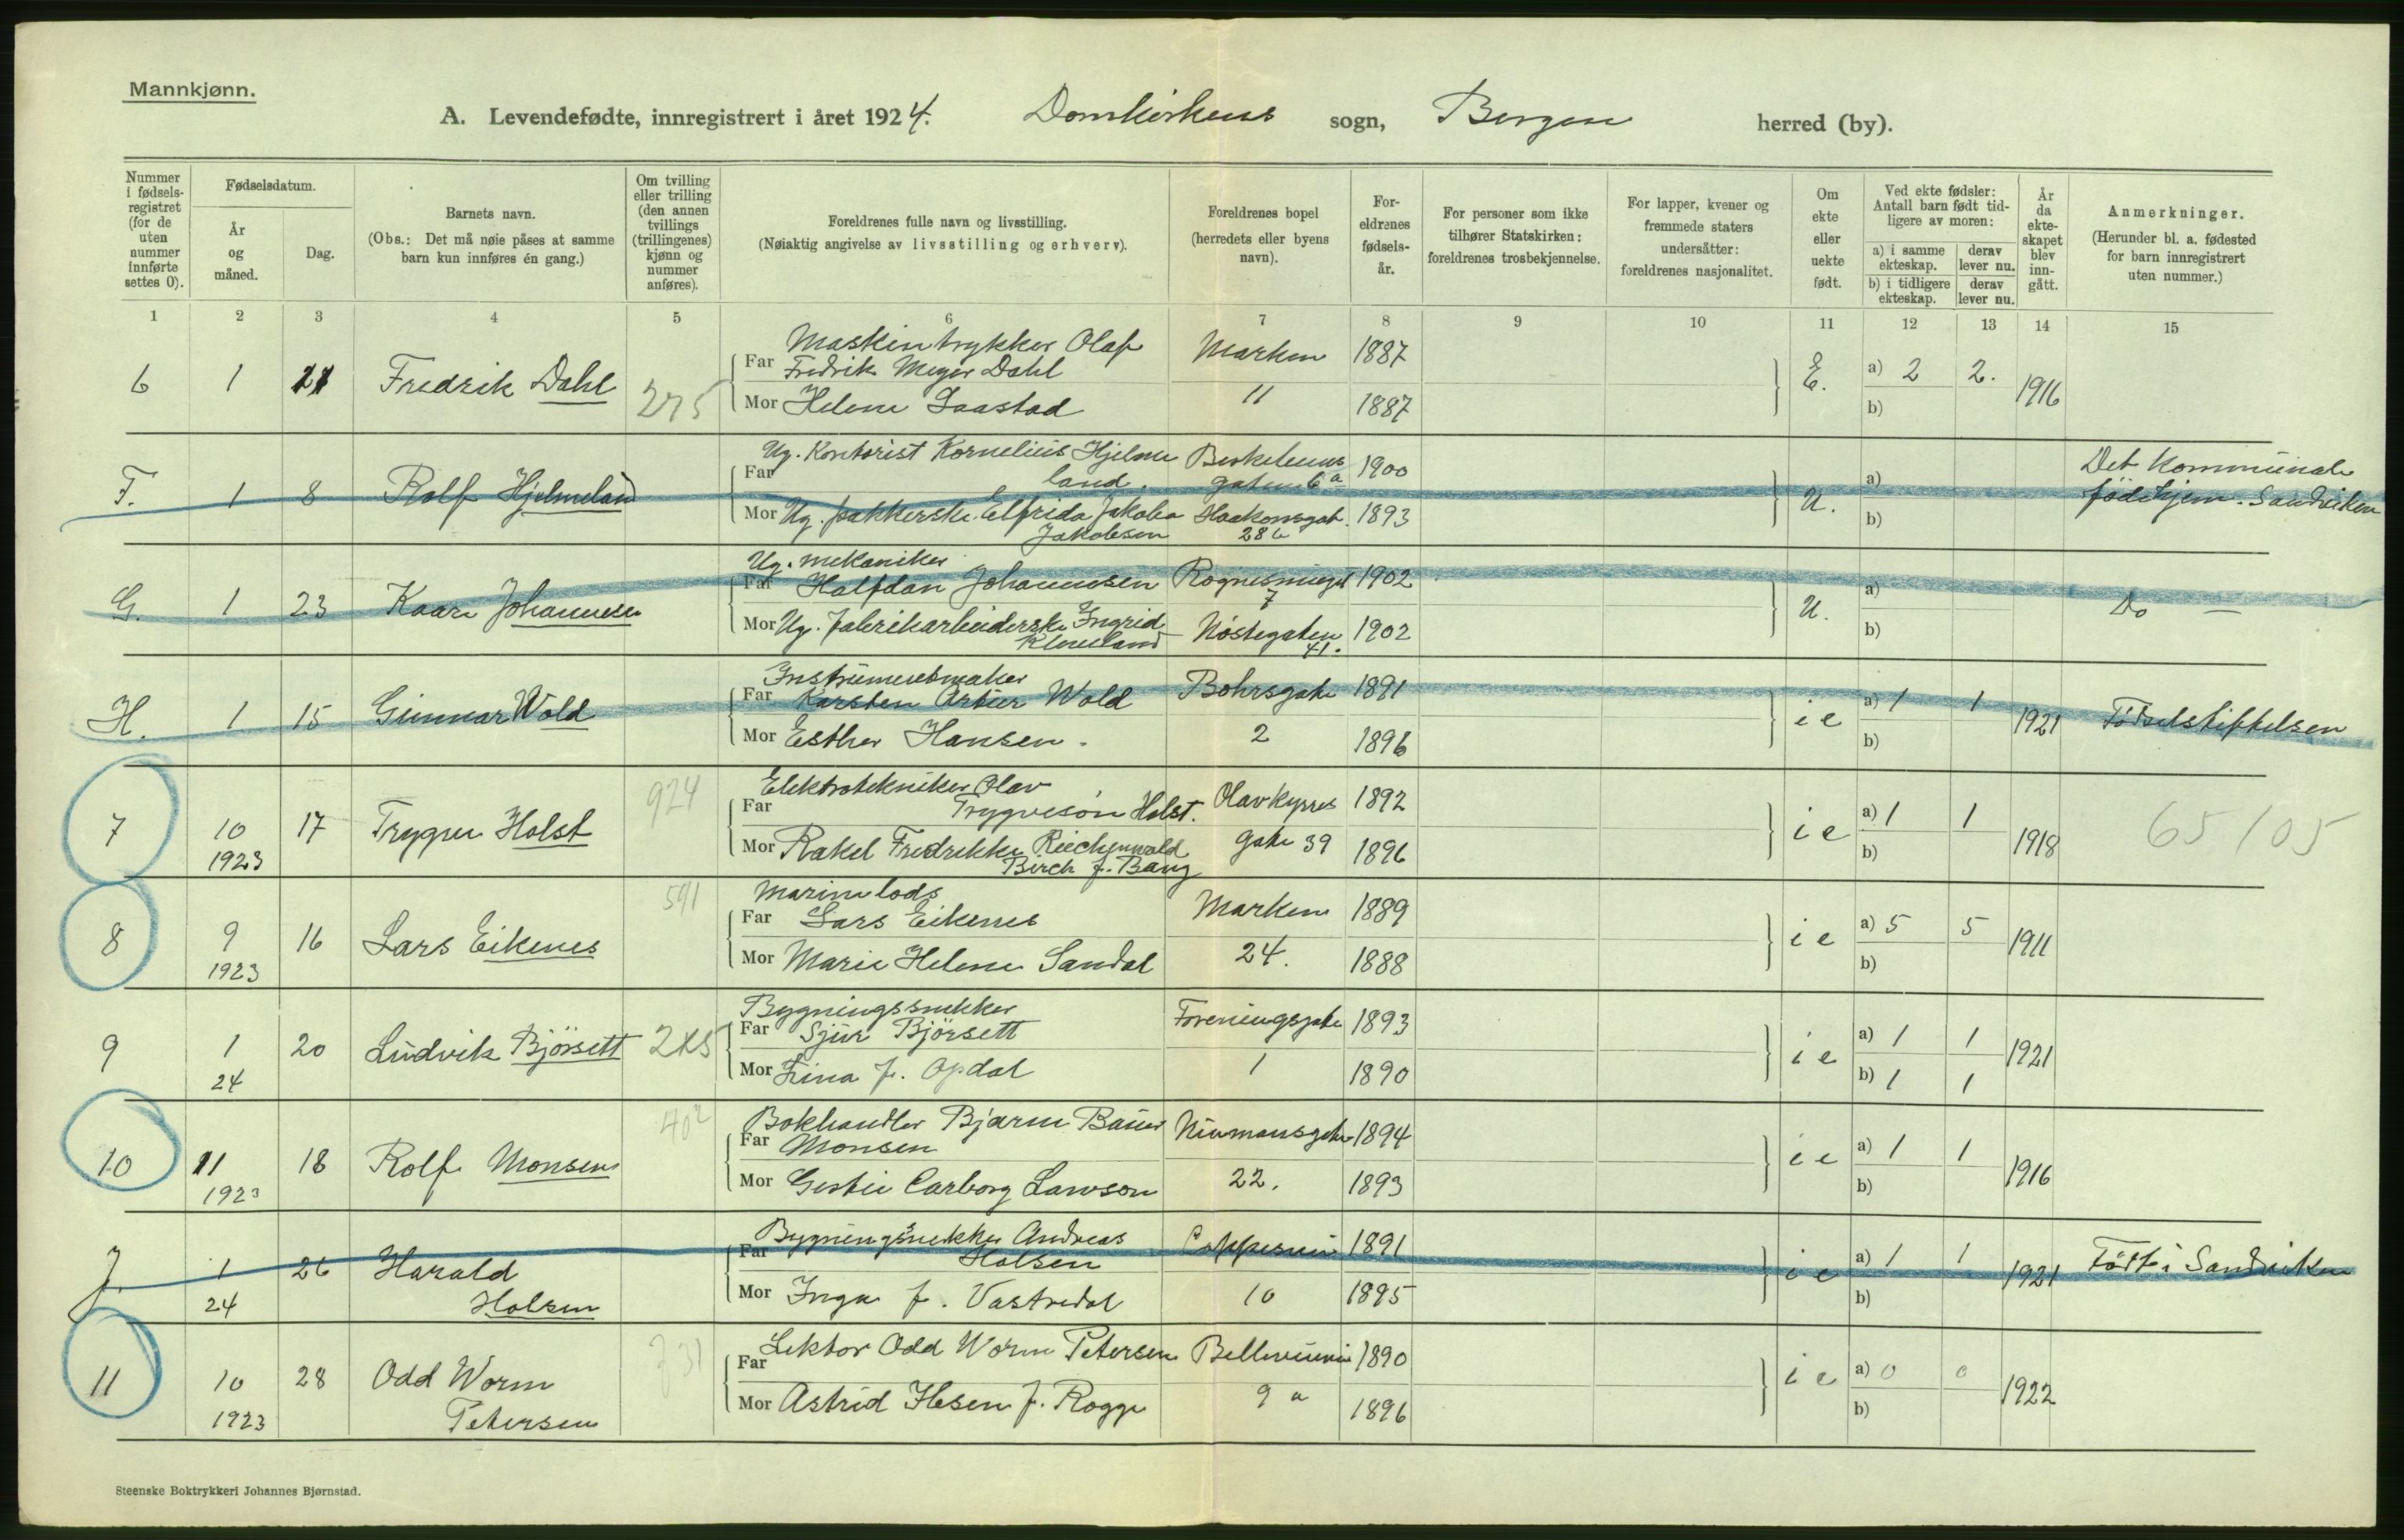 Mannkjønn.
A. Levendefødte, innregistrert i året 1924. Domkirkens sogn, Bergen herred (by).
Nummer i fødsels-registret (for de uten nummer innførte settes 0).
Fødselsdatum.
År og måned.
Dag.
Barnets navn.
(Obs.: Det må nøie påses at samme barn kun innføres én gang.)
Om tvilling eller trilling (den annen tvillings (trillingenes) kjønn og nummer anføres).
Foreldrenes fulle navn og livsstilling.
(Nøiaktig angivelse av livsstilling og erhverv).
Foreldrenes bopel (herredets eller byens navn).
For-eldrenes fødsels-år.
For personer som ikke tilhører Statskirken: foreldrenes trosbekjennelse.
For lapper, kvener og fremmede staters undersåtter: foreldrenes nasjonalitet.
Om ekte eller uekte født.
Ved ekte fødsler: Antall barn født tid-ligere av moren:
a) i samme ekteskap. derav lever nu.
b) i tidligere ekteskap. derav lever nu.
År da ekte-skapet blev inn-gått.
Anmerkninger.
(Herunder bl. a. fødested for barn innregistrert uten nummer.)
1 2 3 4 5 6 7 8 9 10 11 12 13 14 15
Maskintrykker Olaf Marken 1887
6 1 21 Fredrik Dahl 275 Far Fredrik Meyer Dahl E. a) 2 2. 1916
Mor Helene Saastad 11 1887 b)
Ug. Kontorist Kornelius Hjelme Birkelunds 1900 Det kommunale
F. 1 8 Rolf Hjelmeland Far land. gaten 6a U. a) födehjem. Sandviken
Mor Ug. pakkerske Elfrida Jakoba Haakonsgat. 1893 b)
Jakobsen 28
Ug. mekaniker
G. 1 23 Kaare Johannesen Far Halfdan Johannesen Rognesmuget 1902 U. a) Do —
7
Mor Ug. fabrikarbeiderske Ingrid Nöstegaten 1902 b)
Kleiveland 41.
Instrumentmaker
H. 1 15 Gunnar Wold Far Karsten Artur Wold Bohrsgate 1891 ie a) 1 1 1921 Fødselsstiftelsen
Mor Esther Hansen. 2 1896 b)
Elektrotekniker Olav 924
7 10 17 Trygve Holst Far Trygvesön Holst. Olav Kyrres 1892 ie a) 1 1 1918 65/05
1923 Mor Rakel Fredrikke Reichenwald gate 39 1896 b)
Birch f. Bang
591 Marinelods
8 9 16 Lars Eikenes Far Lars Eikenes Marken 1889 ie a) 5 5 1911
1923 Mor Marie Helene Sandal 24. 1888 b)
Bygningssnekker
9 1 20 Ludvik Björsett Far Sjur Björsett Foreningsgate 1893 ie a) 1 1 1921
24 Mor Lina f. Opdal 1 1890 b) 1 1
402 Bokhandler Bjarne Bauer Neumansgate 1894
10 11 18 Rolf Monsen Far Monsen ie a) 1 1 1916
1923 Mor Carborg Lawson 22. 1893 b)
Bygningsnekker Andreas
J. 1 26 Harald Far Holsen 1891 ie a) 1 1 1921 Född i Sandviken
24 Holsen Mor Inga f. Vastredal 10 1895 b)
Lektor Odd Worm Petersen Bellevuevei 1890
11 10 28 Odd Worm Far ie a) 0 0 1922
1923 Petersen Mor Astrid Hesen f. Rogge 9 a 1896 b)
Steenske Boktrykkeri Johannes Bjørnstad.